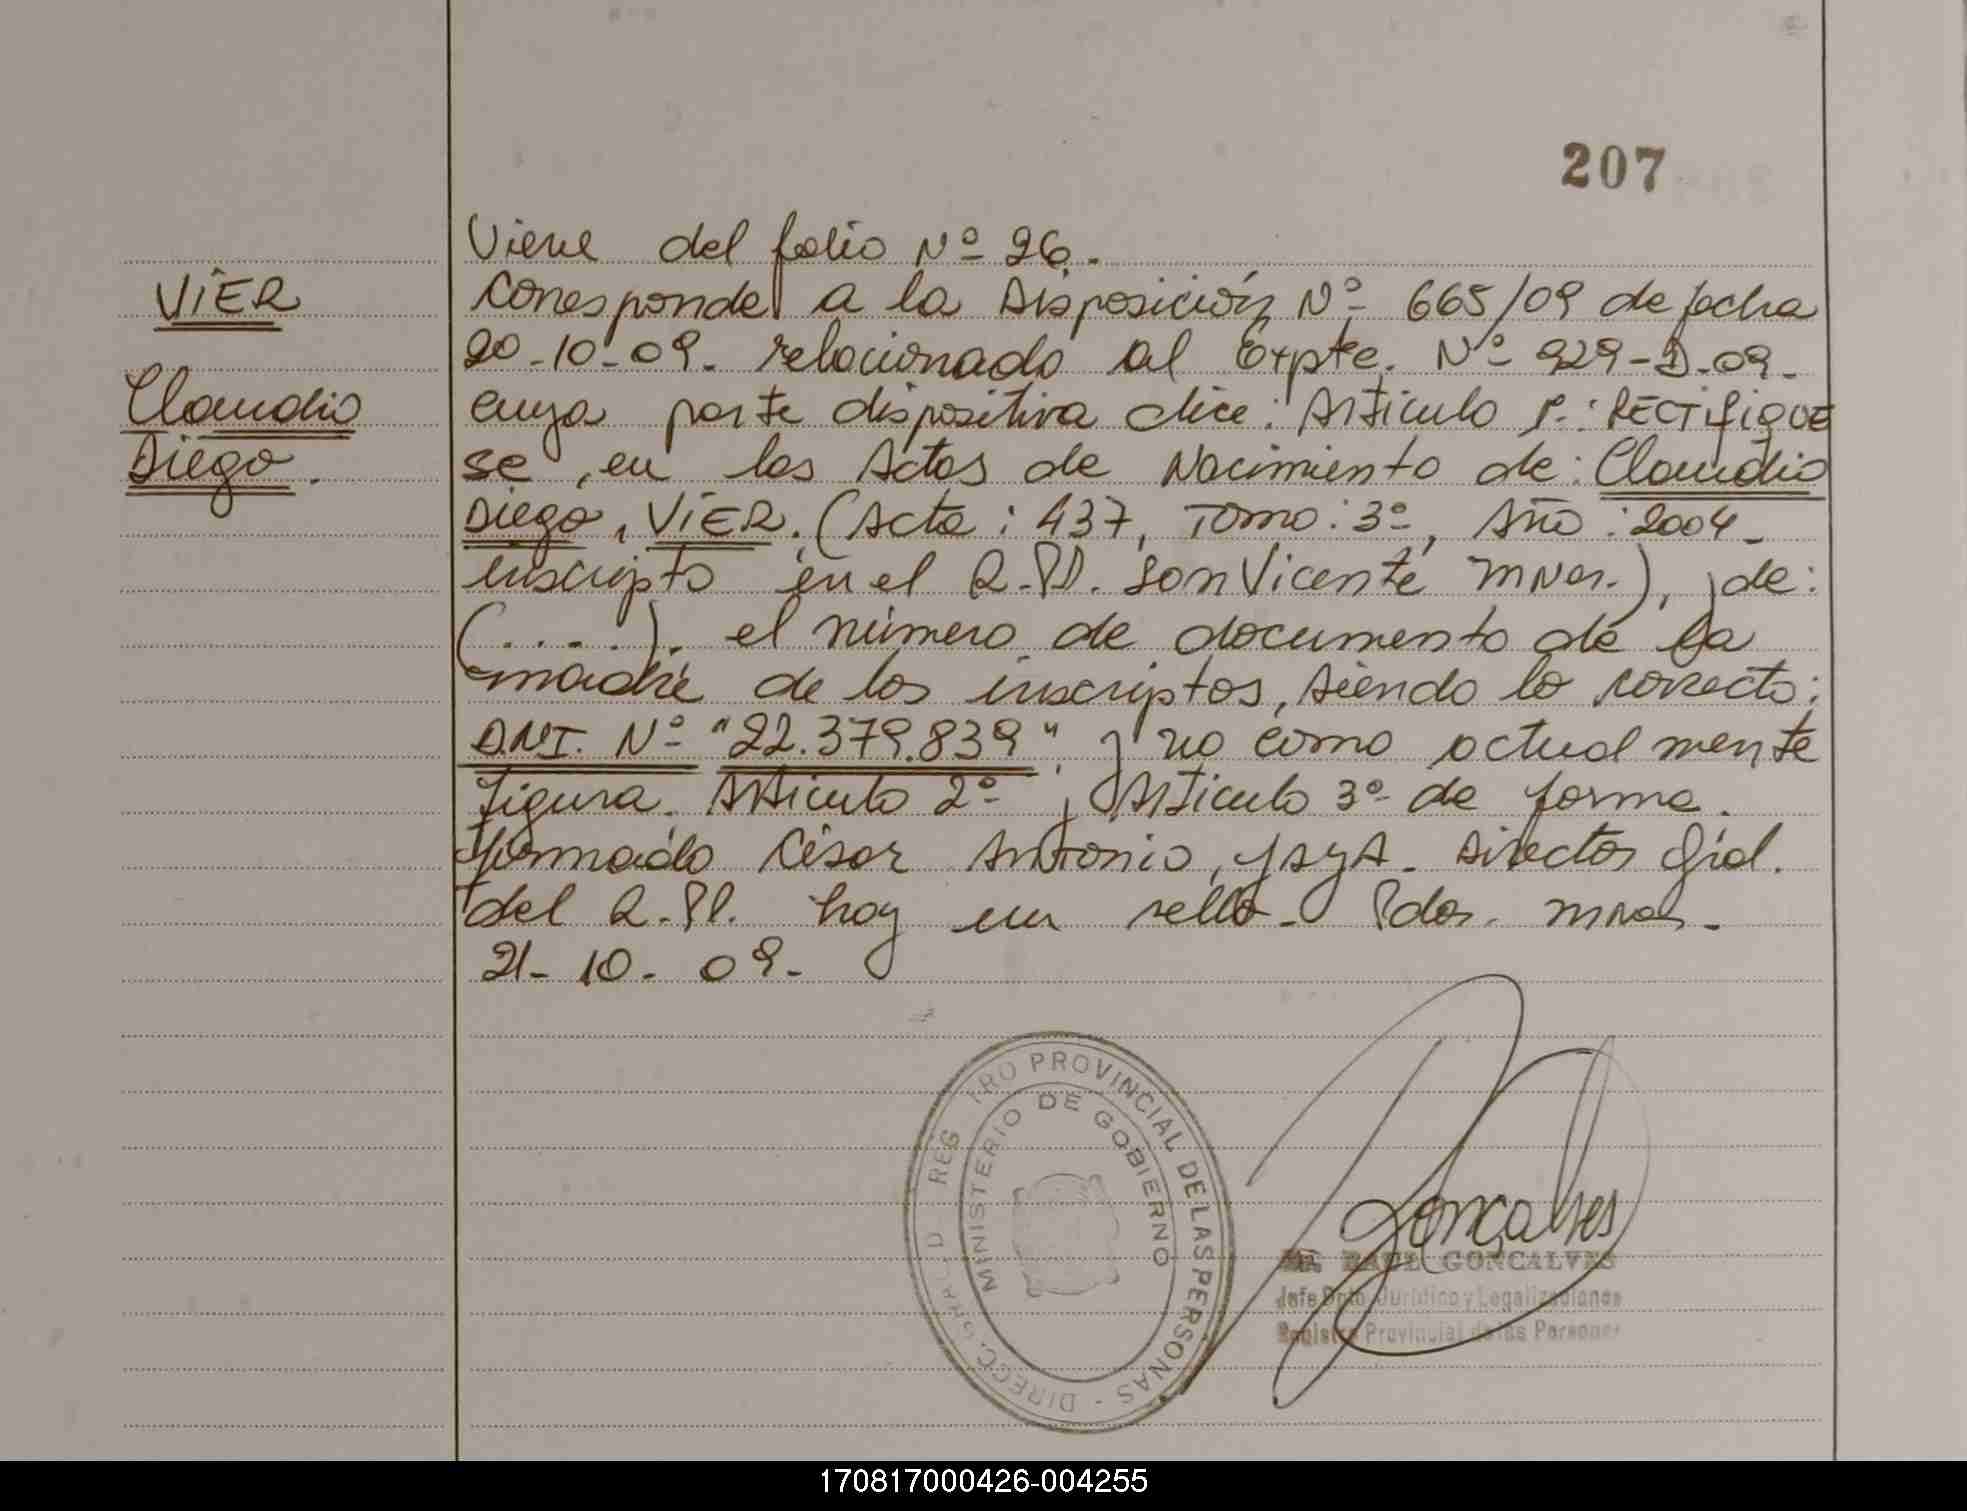 207
Viene del folio Nº 26.
VIER
Corresponde a la Disposición Nº 665/09 de fecha
20-10-09. relacionado al Expte. Nº 929-D-09-
Claudio
cuya parte dispositiva dice: Artículo 1º.: RECTIFIQUE
Diego.
se, en las Actas de Nacimiento de: Claudio
Diego, VIER, (Acta: 437, Tomo: 3º, Año: 2004-
inscripto en el R.PP. San Vicente Mnes.), y de:
(.....). el número de documento de la
madre de los inscriptos, siendo lo correcto:
D.N.I. Nº "22.379.839", y no como actualmente
figura. Artículo 2º y Artículo 3º de forma.
firmado César Antonio, YAYA. Director Gral.
del R.PP. hay un sello- Pdas. Mnes-
21-10-09-
DIRECC. GRAL. D REG TRO PROVINCIAL DE LAS PERSONAS -
MINISTERIO DE GOBIERNO
Gonçalves
RAUL GONCALVES
Jefe Dpto Jurídico y Legalizaciones
Registro Provincial de las Personas
170817000426-004255